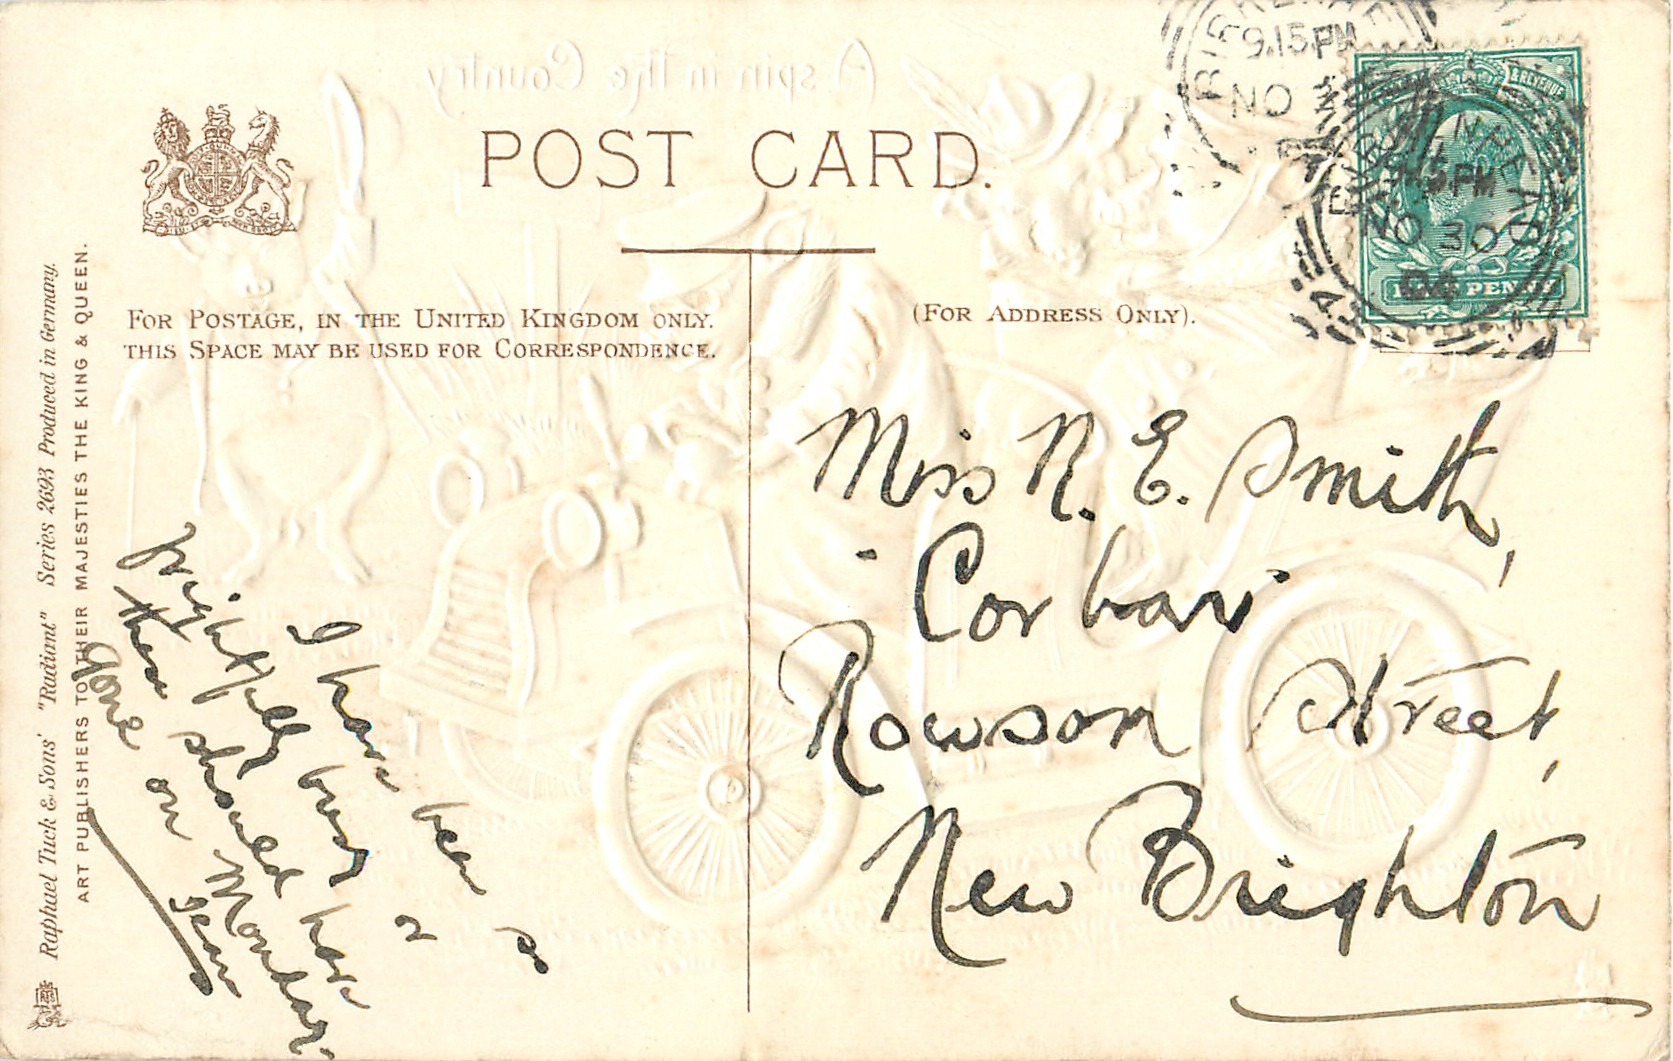 A spin in the Country
POST CARD.
FOR POSTAGE, IN THE UNITED KINGDOM ONLY.
THIS SPACE MAY BE USED FOR CORRESPONDENCE.
(FOR ADDRESS ONLY).
Raphael Tuck & Sons' "Radiant" Series 2693 Produced in Germany.
ART PUBLISHERS TO THEIR MAJESTIES THE KING & QUEEN.
9.15 PM
NO 30
04
HALF PENNY
I have been so
frightfully busy or
then should have
gone on Monday.
Miss N. E. Smith,
Corbar
Rowson Street,
New Brighton